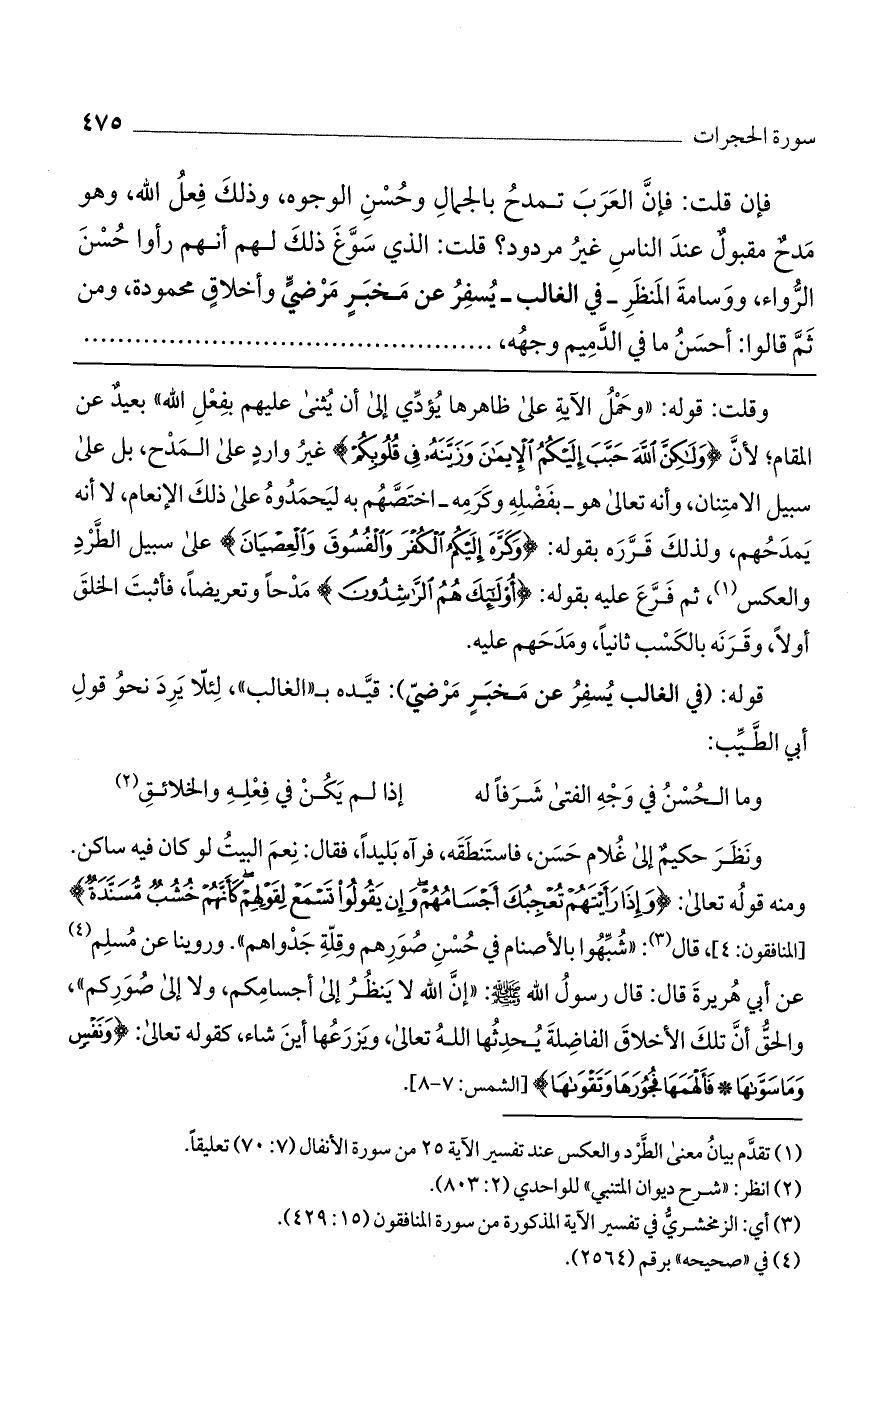 سورة الحجرات ٤٧٥
فإن قلت: فإنَّ العَرَبَ تـمدحُ بالجمالِ وحُسْنِ الوجوه، وذلكَ فِعلُ الله، وهو
مَدحٌ مقبولٌ عندَ الناسِ غيرُ مردود؟ قلت: الذي سَوَّغَ ذلكَ لـهم أنـهم رأوا حُسْنَ
الرُّواء، ووَسامةَ المَنظَرِ ـ في الغالب ـ يُسفِرُ عن مَـخبَـرٍ مَرْضيٍّ وأخلاقٍ محمودة، ومن
ثَمَّ قالوا: أحسَنُ ما في الدَّميم وجهُه، ..............................................
وقلت: قوله: «وحَمْلُ الآيةِ علىٰ ظاهرها يُؤدِّي إلىٰ أن يُثنىٰ عليهم بفِعْلِ الله» بعيدٌ عن
المقام؛ لأنَّ ﴿وَلَٰكِنَّ ٱللَّهَ حَبَّبَ إِلَيْكُمُ ٱلْإِيمَٰنَ وَزَيَّنَهُۥ فِى قُلُوبِكُمْ﴾ غيرُ واردٍ علىٰ الـمَدْح، بل علىٰ
سبيل الامتِنان، وأنه تعالىٰ هو ـ بفَضْلِهِ وكَرَمِه ـ اختَصَّهُم به ليَحمَدُوهُ علىٰ ذلكَ الإنعام، لا أنه
يَمدَحُهم، ولذلكَ قَـرَّرَه بقوله: ﴿وَكَرَّهَ إِلَيْكُمُ ٱلْكُفْرَ وَٱلْفُسُوقَ وَٱلْعِصْيَانَ﴾ علىٰ سبيل الطَّرْدِ
والعكس(١)، ثم فَـرَّعَ عليه بقوله: ﴿أُوْلَٰٓئِكَ هُمُ ٱلرَّٰشِدُونَ﴾ مَدْحاً وتعريضاً، فأثبتَ الخلقَ
أولاً، وقَـرَنَه بالكَسْب ثانياً، ومَدَحَهم عليه.
قوله: (في الغالب يُسفِرُ عن مَـخبَـرٍ مَرْضيّ): قيَّـده بـ«الغالب»، لِئلّا يَرِدَ نحوُ قولِ
أبي الطَّيِّب:
وما الـحُسْنُ في وَجْهِ الفتىٰ شَـرَفاً له إذا لـم يَكُـنْ في فِعْلِـهِ والخلائـقِ(٢)
ونَظَـرَ حكيمٌ إلىٰ غُلام حَسَن، فاستَنطَقَه، فرآه بَليداً، فقال: نِعمَ البيتُ لو كان فيه ساكن.
ومنه قولُه تعالىٰ: ﴿وَإِذَا رَأَيْتَهُمْ تُعْجِبُكَ أَجْسَامُهُمْ وَإِن يَقُولُوا۟ تَسْمَعْ لِقَوْلِهِمْ كَأَنَّهُمْ خُشُبٌ مُّسَنَّدَةٌ﴾
[المنافقون: ٤]، قال(٣): «شُبِّهُوا بالأصنام في حُسْنِ صُوَرِهم وقِلّةِ جَدْواهم». وروينا عن مُسلِم(٤)
عن أبي هُريرةَ قال: قال رسولُ الله ﷺ: «إنَّ الله لا يَنظُـرُ إلىٰ أجسامِكم، ولا إلىٰ صُوَرِكم»،
والحقُّ أنَّ تلكَ الأخلاقَ الفاضِلةَ يُـحدِثُها اللـهُ تعالىٰ، ويَزرَعُها أينَ شاء، كقوله تعالىٰ: ﴿وَنَفْسٍ
وَمَا سَوَّىٰهَا * فَأَلْهَمَهَا فُجُورَهَا وَتَقْوَىٰهَا﴾ [الشمس: ٧-٨].
(١) تقدَّم بيانُ معنىٰ الطَّرْد والعكس عند تفسير الآية ٢٥ من سورة الأنفال (٧: ٧٠) تعليقاً.
(٢) انظر: «شـرح ديوان المتنبي» للواحدي (٢: ٨٠٣).
(٣) أي: الزمخشـريُّ في تفسير الآية المذكورة من سورة المنافقون (١٥: ٤٢٩).
(٤) في «صحيحه» برقم (٢٥٦٤).